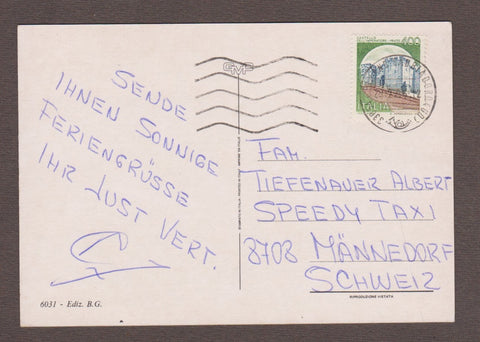 SENDE
IHNEN SONNIGE
FERIENGRÜSSE
IHR JUST VERT.
6031 - Ediz. B.G.
GMF
400
ITALIA
FAM.
TIEFENAUER ALBERT
SPEEDY TAXI
8708 MÄNNEDORF
SCHWEIZ
RIPRODUZIONE VIETATA